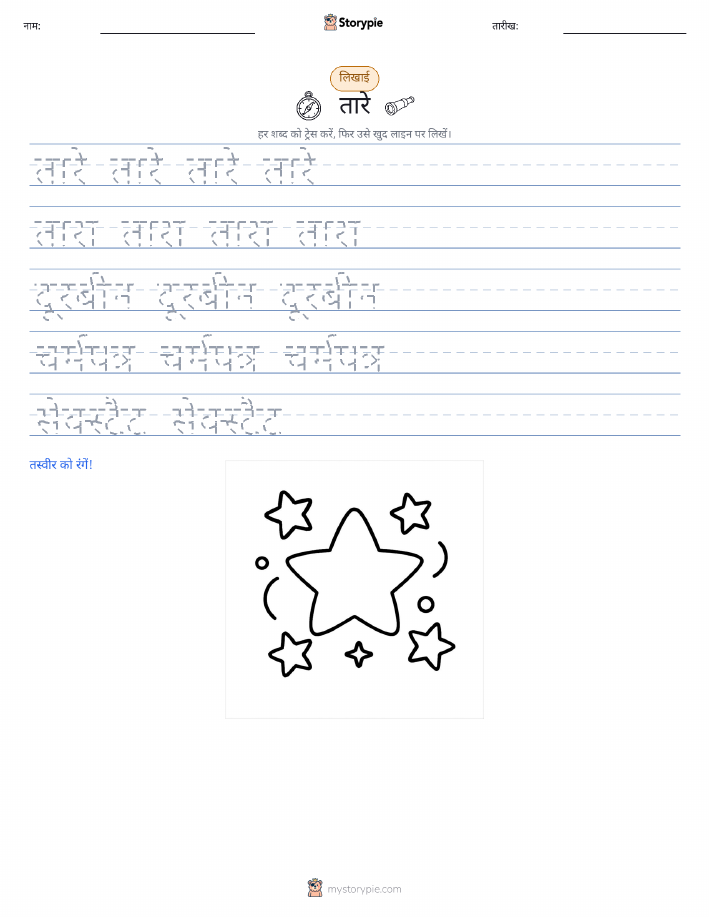 नाम: Storypie तारीख:
लिखाई
तारे
हर शब्द को ट्रेस करें, फिर उसे खुद लाइन पर लिखें।
तारे तारे तारे तारे
तारा तारा तारा तारा
दूरबीन दूरबीन दूरबीन
चर्मपत्र चर्मपत्र चर्मपत्र
सेक्स्टैंट सेक्स्टैंट
तस्वीर को रंगें!
mystorypie.com